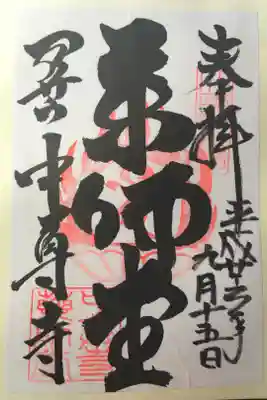 奉拝 平成廿六年
九月十五日
薬師堂
関山 中尊寺